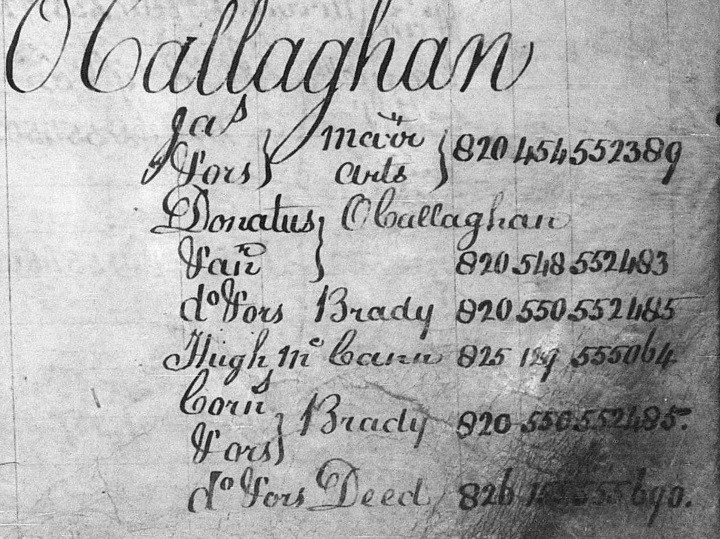 O'Callaghan
Jas marr
& ors arts 820 454 552389
Donatus O'Callaghan
& anr 820 548 552483
do & ors Brady 820 550 552485
Hugh Mc Cann 825 129 555064
Corns
& ors Brady 820 550 552485.
do & ors Deed 826 555690.